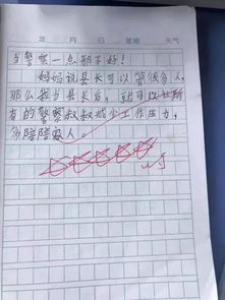 年 月 日 星期 天气
当警察一点都不好！
妈妈说县长可以管很多人，
那么我当县长后，就可以让所
有的警察叔叔减少工作压力，
多陪陪家人